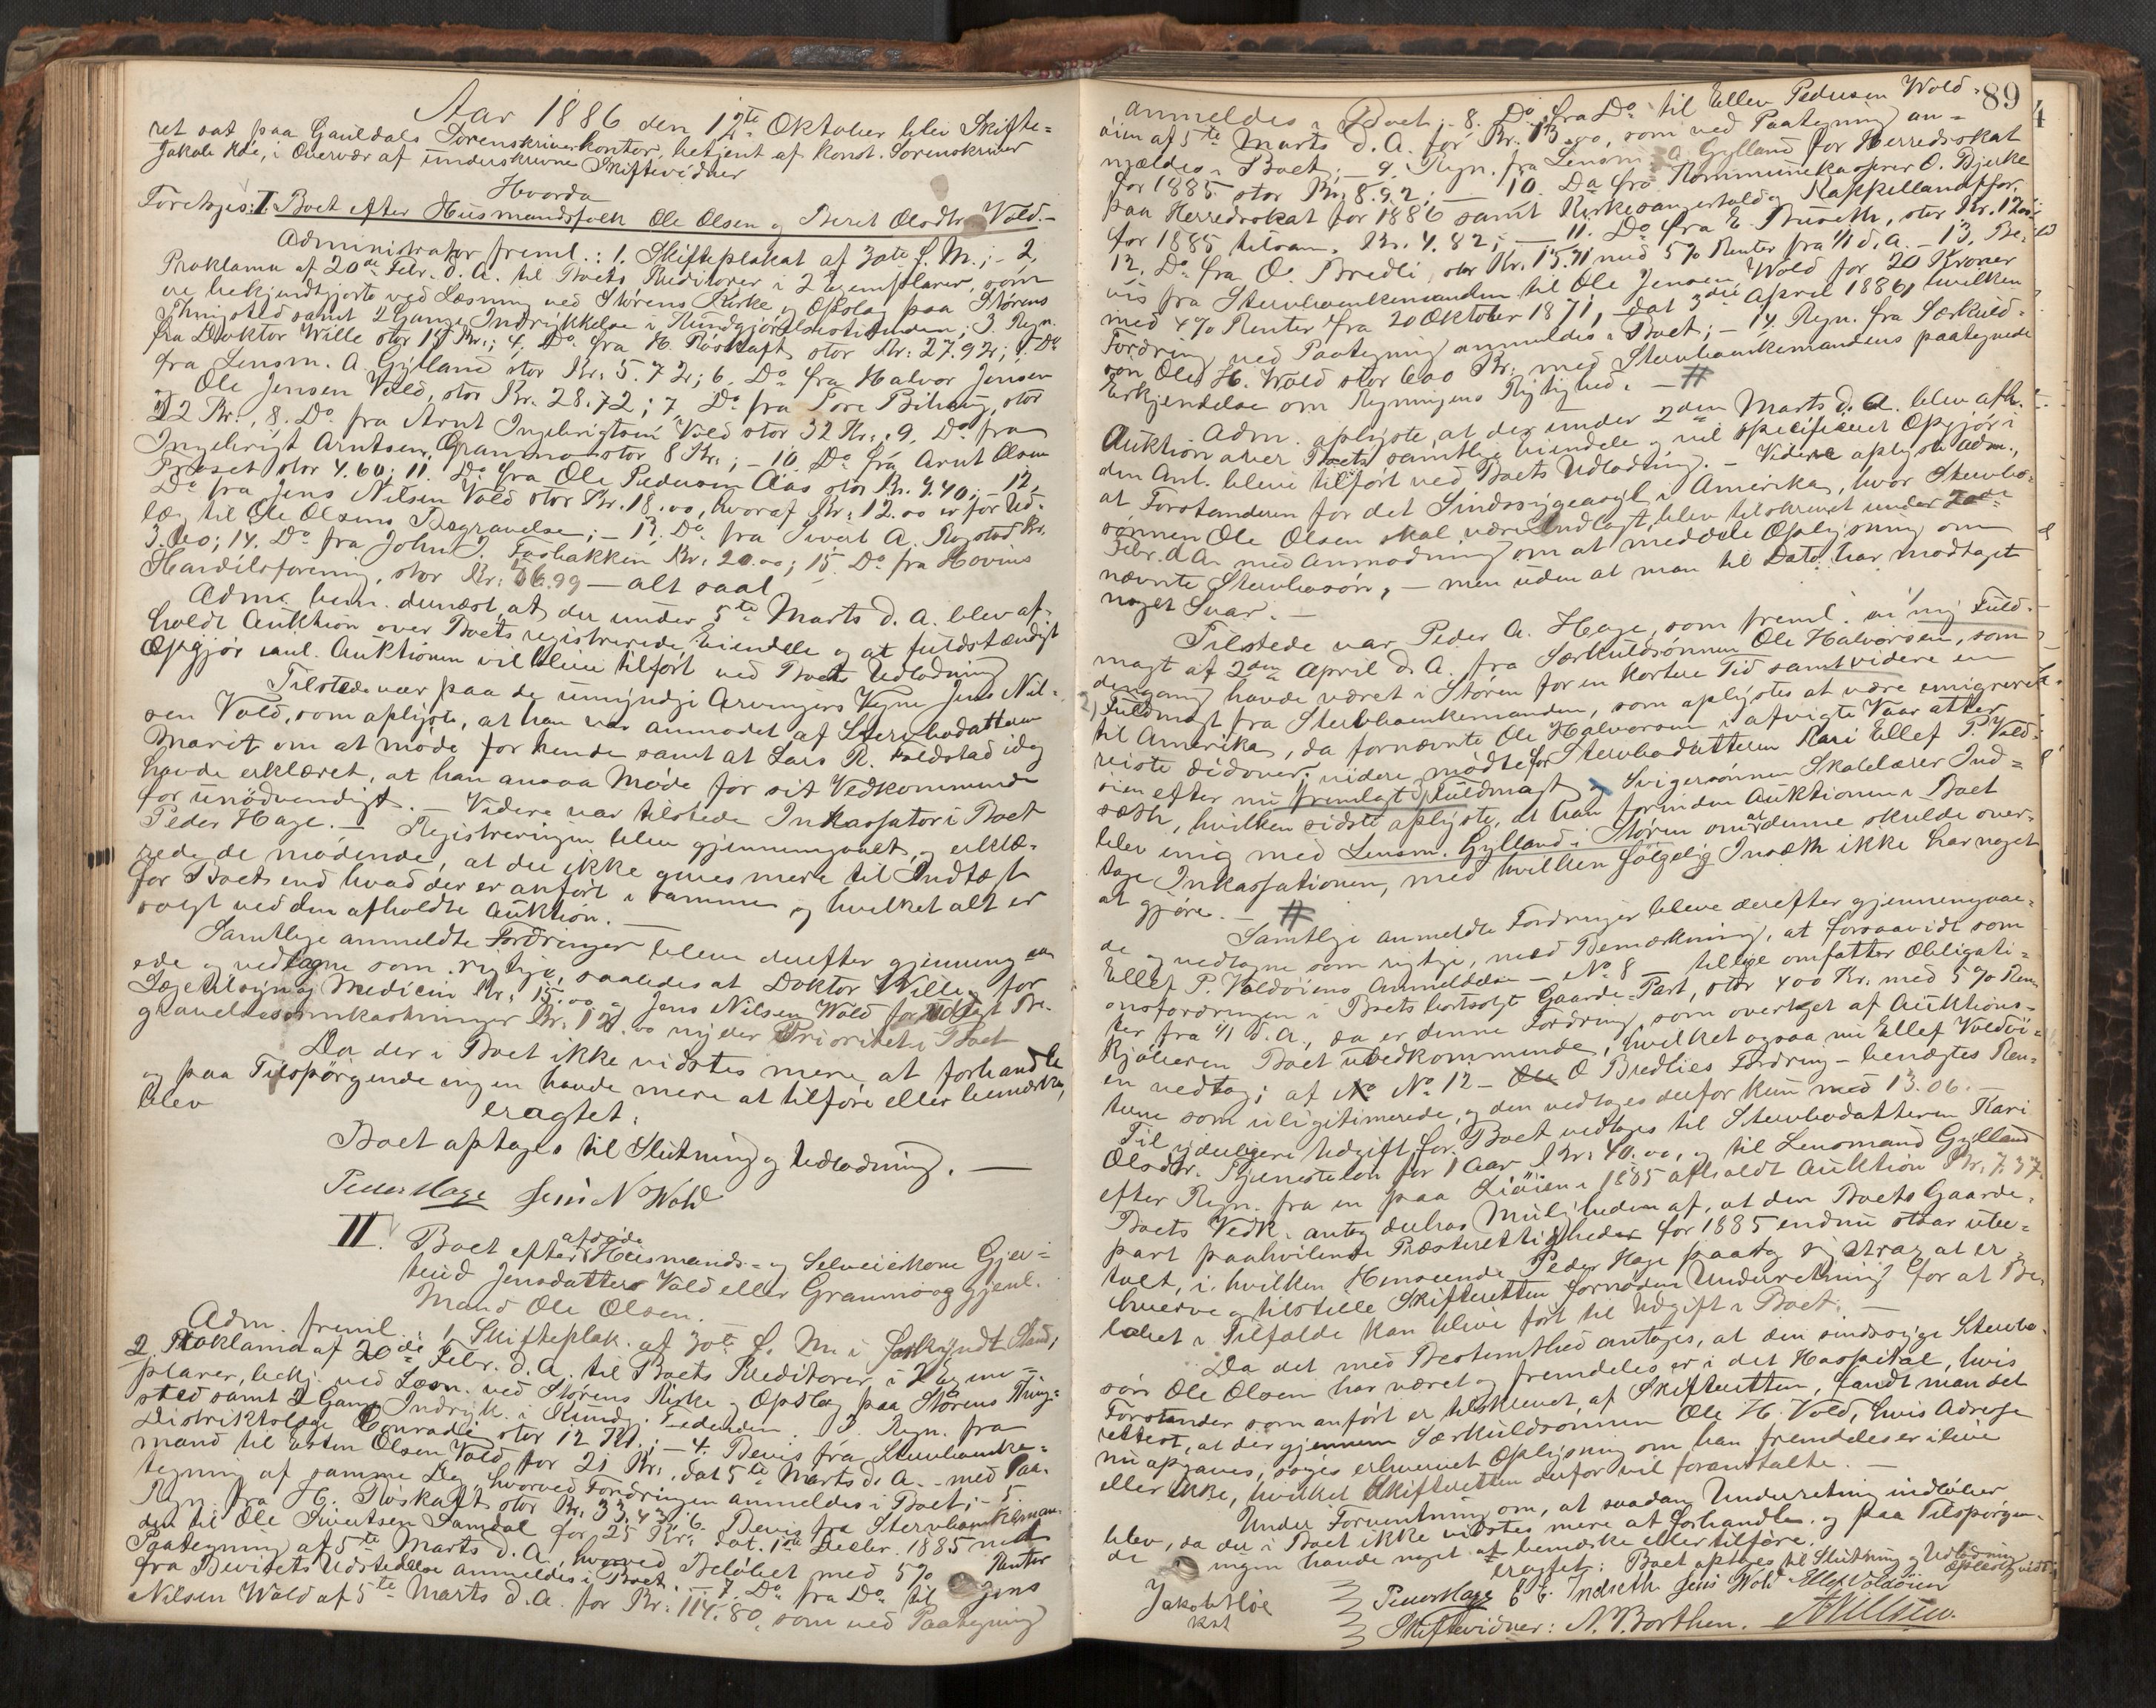 Aar 1886 den 12te Oktober blev Skifte=
ret sat paa Gauldals Sorenskriverkontor, betjent af konst. Sorenskriver
Jakob Høe, i Overvær af underskrevne Skiftevidner
Hvorda
Foretoges: I. Boet efter Husmandsfolk Ole Olsen og Beret Olsdtr. Vold.-
Administrator freml.: 1. Skifteplakat af 30te f. M.; - 2,
Proklama af 20de Febr. d. A. til Boets Kreditorer i 2 Exemplarer, som
ere bekjendtgjorte ved Læsning ved Størens Kirke, og Opslag paa Størens
Thingsted samt 2 Gange Indrykkelse i Kundgjørelsestidenden; 3. Regn.
fra Doktor Wille stor 15 Kr.; 4. Do fra H. Röskaft stor Kr. 27.92; 5. Do
fra Lensm. A. Gylland stor Kr. 5.72; 6. Do fra Halvor Jensen
og Ole Jensen Vold, stor Kr. 28.72; 7. Do fra Tore Bihaug, stor
22 Kr., 8. Do fra Arnt Ingebrigtsen Vold stor 32 Kr.; 9. Do fra
Ingebrigt Arntsen Granmo stor 8 Kr.; - 10. Do fra Arnt Olsen
Præset stor 4.60; 11. Do fra Ole Pedersen Aas stor Kr. 4.40; - 12,
Do fra Jens Nilsen Vold stor Kr. 18.00, hvoraf Kr. 12.00 er for Ud=
læg til Ole Olsens Begravelse; - 13. Do fra Sivert A. Rogstad Kr.
3.00; 14. Do fra John J. Fashakken Kr. 20.00; 15. Do fra Hovins
Handelsforening, stor Kr. 56.99 - alt saal
Adm. bem. dernæst, at der under 5te Marts d. A. blev af=
holdt Auktion over Boets registrerede Eiendele og at fuldstændigt
Opgjør anl. Auktionen vil blive tilført ved Boets Udlodning
Tilstede var paa de umyndige Arvingers Vegne Jens Nil=
sen Vold, som oplyste, at han var anmodet af Stervbodatteren
Marit om at møde for hende samt at Lars R. Foldstad idag
havde erklæret, at han ansaa Møde for sit Vedkommende
for unödvendigt. - Videre var tilstede Inkassator i Boet
Peder Hage. - Registreringen blev gjennemgaaet, og erklæ=
rede de mødende, at der ikke gives mere til Indtægt
for Boet end hvad der er anført i samme og hvilket alt er
solgt ved den afholdte Auktion. -
Samtlige anmeldte Fordringer bleve derefter gjennemgaa=
ede og vedtagne som rigtige, saaledes at Doktor Wille for
Lægetilsyn og Medicin Kr. 15.00 og Jens Nilsen Wold for Udlagt Be=
gravelsesomkostninger Kr. 12.00 nyder Prioritet i Boet
Da der i Boet ikke vidstes mere at forhandle
og paa Tilspørgende ingen havde mere at tilføre eller bemærke,
blev
eragtet:
Boet optages til Slutning og Udlodning. -
Peder Hage Jens N Wold
II. Boet efter afdøde Husmands- og Selveierkone Gjer=
trud Jensdatter Vold eller Granmo og gjenl.
Mand Ole Olsen.
Adm. freml.: 1. Skifteplak. af 30te f. M. i forkyndt Stand,
2. Proklama af 20de Febr. d. A. til Boets Kreditorer i 2 Exem=
plarer, bekj. ved Læsn. ved Størens Kirke og Opslag paa Størens Thing=
sted samt 2 Gange Indryk. i Kundg. Tidenden. 3. Regn. fra
Distriktslæge Conradi stor 12 Kr.; - 4. Bevis fra Stervboenke=
mand til Esten Olsen Vold for 21 Kr. dat. 5te Marts d. A. - med Paa=
tegning af samme Dag hvorved Fordringen anmeldes i Boet; - 5.
Regn. fra H. Röskaft stor Kr. 33.43; 6. Bevis fra Stervboenkeman=
den til Ole Sivertsen Samdal for 25 Kr. dat. 1ste Decbr. 1885 med
Paategning af 5te Marts d. A., hvorved Beløbet med 5% Renter
fra Bevisets Udstedelse anmeldes i Boet. - 7. Do fra Do til Jens
Nilsen Wold af 5te Marts d. A. for Kr. 114.80, som ved Paategning
89
anmeldes i Boet; - 8. Do fra Do til Ellev Pedersen Wold=
öien af 5te Marts d. A. for Kr. 13.00, som ved Paategning an=
meldes i Boet; - 9. Regn. fra Lensm. A. Gylland for Herredsskat
for 1885 stor Kr. 8.92; - 10. Do fra Kommunekasserer O. Bjerke
paa Herredsskat for 1886 samt Kirkesangertold og
for 1885 tilsam. Kr. 4.82; - 11. Do fra E. Huseth, stor Kr.
12. Do fra O. Bredli, stor Kr. 15.71 med 5% Renter fra 1/1 d. A. - 13. Be=
vis fra Stervboenkemanden til Ole Jensen Wold for 20 Kroner
med 4% Renter fra 20 Oktober 1871, dat 3die April 1886, hvilken
Fordring ved Paategning anmeldes i Boet; - 14. Regn. fra Særkuld=
søn Ole H. Wold stor 600 Kr. med Stervboenkemandens paategnede
Erkjendelse om Regningens Rigtighed. - #
Adm. oplyste, at der under 2den Marts d. A. blev afh.
Auktion over Boets samtlige Eiendele og vil specificeret Opgjør i
den Anl. blive tilført ved Boets Udlodning. - Videre oplyste Adm.,
at Forstanderen for det Sindssygeasyl i Amerika, hvor Stervbo=
sønnen Ole Olsen skal være indlagt, blev tilskrevet under 20de
Febr. d. A. med Anmodning om at meddele Oplysning om
nævnte Stervbosøn, - men uden at man til Dato har modtaget
noget Svar. -
Tilstede var Peder A. Hage, som freml. en 1) ny Fuld=
magt af 2den April d. A. fra Særkuldsönnen Ole Halvorsen, som
dengang havde været i Støren for en kortere Tid samt videre en
2) Fuldmagt fra Stervboenkemanden, som oplystes at være emigreret
til Amerika, da fornævnte Ole Halvorsen i afvigte Vaar atter
reiste didover; videre mødte for Stervbodatteren Kari Ellef P. Vold=
öien efter nu fremlagt 3) Fuldmagt og Svigersønnen Skolelærer Ind=
sæth, hvilken sidste oplyste, at han forinden Auktionen i Boet
blev enig med Lensm. Gylland i Støren om at denne skulde over=
tage Inkassationen, med hvilken følgelig Inseth ikke har noget
at gjøre. - #
Samtlige anmeldte Fordringer bleve derefter gjennemgaae=
de og vedtagne som rigtige, med Bemærkning, at forsaavidt som
Ellef P. Voldöiens Anmeldelse - No 8 - tillige omfatter Obligati=
onsfordringen i Boets bortsolgte Gaarde-Part, stor 400 Kr. med 5% Ren=
ter fra 1/1 d. A., da er denne Fordring, som overtaget af Auktions=
kjøberen Boet uvedkommende, hvilket ogsaa nu Ellef Voldöi=
en vedtog; af No 12 - O Bredlies Fordring - benægtes Ren=
terne som uligitimerede, og den vedtages derfor kun med 13.06. -
Til yderligere Udgift for Boet vedtages til Stervbodatteren Kari
Olsdtr. Tjenesteløn for 1 Aar Kr. 40.00, og til Lensmand Gylland
efter Regn. fra en paa Liöien i 1885 afholdt Auktion Kr. 7.37.
Boets Vedk. antog derhos Muligheden af, at den Boets Gaarde=
part paahvilende Præsterettigheder for 1885 endnu staar ube=
talt, i hvilken Henseende Peder Hage paatog sig strax at er=
hverve og tilstille Skifteretten fornøden Underretning for at Be=
løbet i Tilfælde kan blive ført til Udgift i Boet. -
Da det med Bestemthed antages, at den sindssyge Stervbo=
søn Ole Olsen har været og fremdeles er i det Hospital, hvis
Forstander som anført er tilskrevet, af Skifteretten, fandt man det
rettest, at der gjennem Særkuldsønnen Ole H. Vold, hvis Adresse
nu opgaves, søges erhvervet Oplysning om han fremdeles er ilive
eller ikke, hvilket Skifteretten derfor vil foranstalte. -
Under Forventning om, at saadan Underretning indløber
blev, da der i Boet ikke vidstes mere at forhandle og paa Tilspørgen=
de ingen havde noget at bemærke eller tilføre.
eragtet: Boet optages til Slutning og Udlodning
Oplæst vedt.
Jakob Høe
kst
Peder Hage E E Indseth Jens Wold Ellef Voldöien
Skiftevidner: N. Borthen.